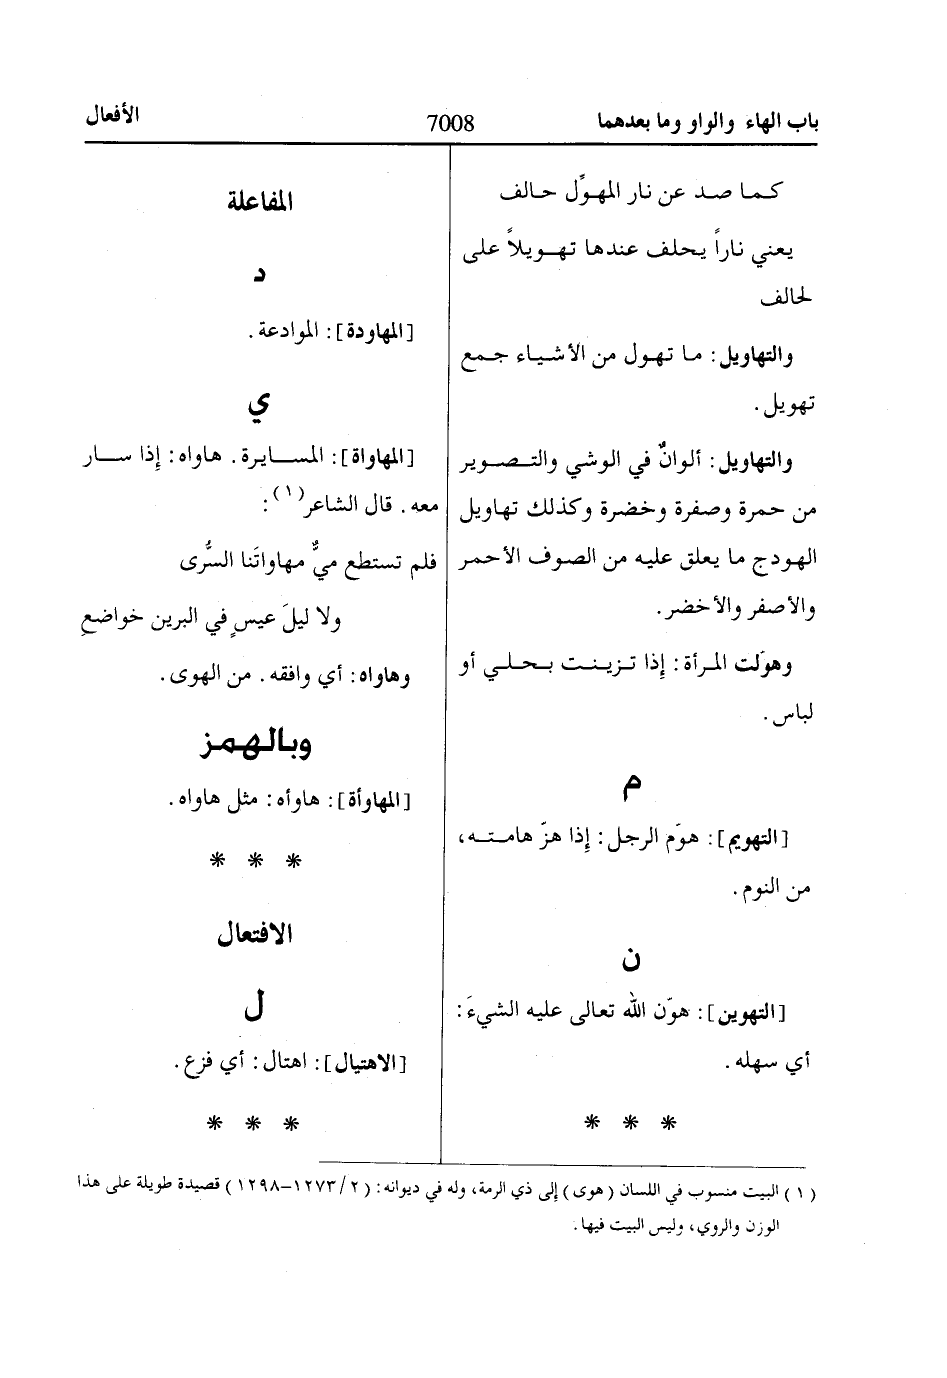 باب الهاء والواو وما بعدهما
7008
الأفعال
كما صد عن نار المهوِّل حالف
يعني ناراً يحلف عندها تهويلاً على
لحالف
والتهاويل: ما تهول من الأشياء جمع
تهويل.
والتهاويل: ألوانٌ في الوشي والتصوير
من حمرة وصفرة وخضرة وكذلك تهاويل
الهودج ما يعلق عليه من الصوف الأحمر
والأصفر والأخضر.
وهوّلت المرأة: إذا تزينت بحلي أو
لباس.
م
[التهويم]: هوّم الرجل: إذا هزّ هامته،
من النوم.
ن
[التهوين]: هوّن الله تعالى عليه الشيءَ:
أي سهله.
* * *
المفاعلة
د
[المهاودة]: الموادعة.
ي
[المهاواة]: المسايرة. هاواه: إذا سار
معه. قال الشاعر(١):
فلم تستطع ميٌّ مهاواتَنا السُّرى
ولا ليلَ عيسٍ في البرين خواضعِ
وهاواه: أي وافقه. من الهوى.
وبالهمز
[المهاوأة]: هاوأه: مثل هاواه.
* * *
الافتعال
ل
[الاهتيال]: اهتال: أي فزع.
* * *
(١) البيت منسوب في اللسان (هوى) إلى ذي الرمة، وله في ديوانه: (٢/١٢٧٣-١٢٩٨) قصيدة طويلة على هذا
الوزن والروي، وليس البيت فيها.